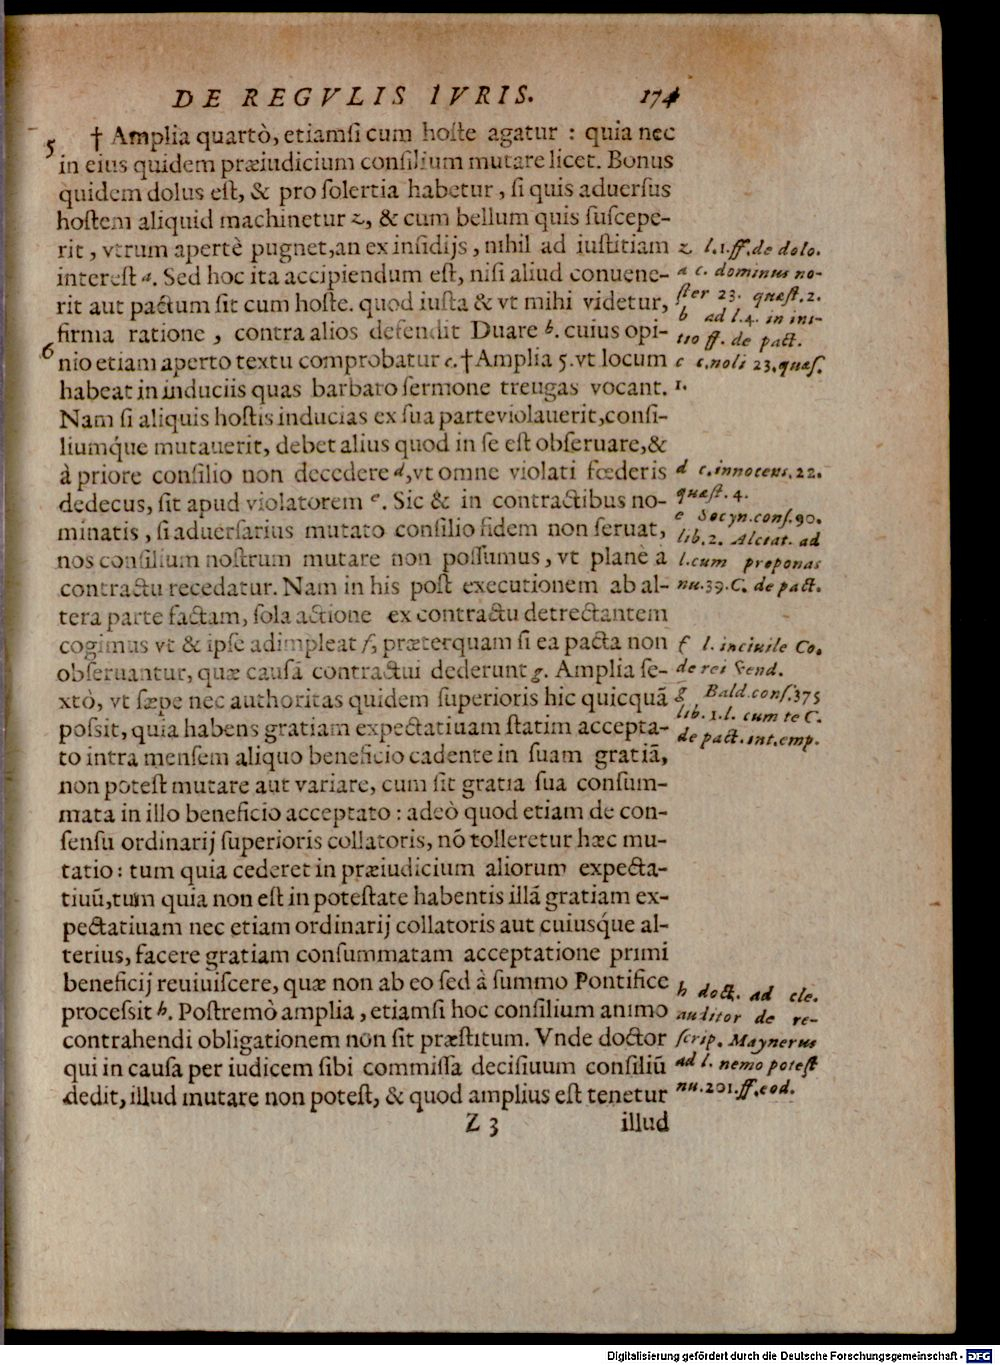 DE REGVLIS IVRIS. 174
5 † Amplia quartò, etiamsi cum hoste agatur : quia nec
in eius quidem præiudicium consilium mutare licet. Bonus
quidem dolus est, & pro solertia habetur, si quis aduersus
hostem aliquid machinetur z, & cum bellum quis suscepe-
rit, vtrum apertè pugnet, an ex insidijs, nihil ad iustitiam
interest a. Sed hoc ita accipiendum est, nisi aliud conuene-
rit aut pactum sit cum hoste. quod iusta & vt mihi videtur,
firma ratione, contra alios defendit Duare b. cuius opi-
6 nio etiam aperto textu comprobatur c. † Amplia 5. vt locum
habeat in induciis quas barbaro sermone treugas vocant.
Nam si aliquis hostis inducias ex sua parte violauerit, consi-
liumq́ue mutauerit, debet alius quod in se est obseruare, &
à priore consilio non decedere d, vt omne violati fœderis
dedecus, sit apud violatorem e. Sic & in contractibus no-
minatis, si aduersarius mutato consilio fidem non seruat,
nos consilium nostrum mutare non possumus, vt plane à
contractu recedatur. Nam in his post executionem ab al-
tera parte factam, sola actione ex contractu detrectantem
cogimus vt & ipse adimpleat f, præterquam si ea pacta non
obseruantur, quæ causã contractui dederunt g. Amplia se-
xtò, vt sæpe nec authoritas quidem superioris hic quicquã
possit, quia habens gratiam expectatiuam statim accepta-
to intra mensem aliquo beneficio cadente in suam gratiã,
non potest mutare aut variare, cum sit gratia sua consum-
mata in illo beneficio acceptato : adeò quod etiam de con-
sensu ordinarij superioris collatoris, nõ tolleretur hæc mu-
tatio : tum quia cederet in præiudicium aliorum expecta-
tiuũ, tum quia non est in potestate habentis illã gratiam ex-
pectatiuam nec etiam ordinarij collatoris aut cuiusq́ue al-
terius, facere gratiam consummatam acceptatione primi
beneficij reuiuiscere, quæ non ab eo sed à summo Pontifice
processit h. Postremò amplia, etiamsi hoc consilium animo
contrahendi obligationem non sit præstitum. Vnde doctor
qui in causa per iudicem sibi commissa decisiuum consiliũ
dedit, illud mutare non potest, & quod amplius est tenetur
Z 3 illud
z l.1.ff.de dolo.
a c. dominus no-
ster 23. quæst. 2.
b ad l.4. in ini-
tio ff. de pact.
c c.noli 23.quæs.
1.
d c.innocens.22.
quæst. 4.
e Socyn.cons.90.
lib.2. Alciat. ad
l.cum proponas
nu.39.C. de pact.
f l. inciuile Co.
de rei vend.
g Bald.cons.375
lib. 1.l. cum te C.
de pact.int.emp.
h doct. ad cle.
auditor de re-
scrip. Maynerus
ad l. nemo potest
nu.201.ff.eod.
Digitalisierung gefördert durch die Deutsche Forschungsgemeinschaft - DFG